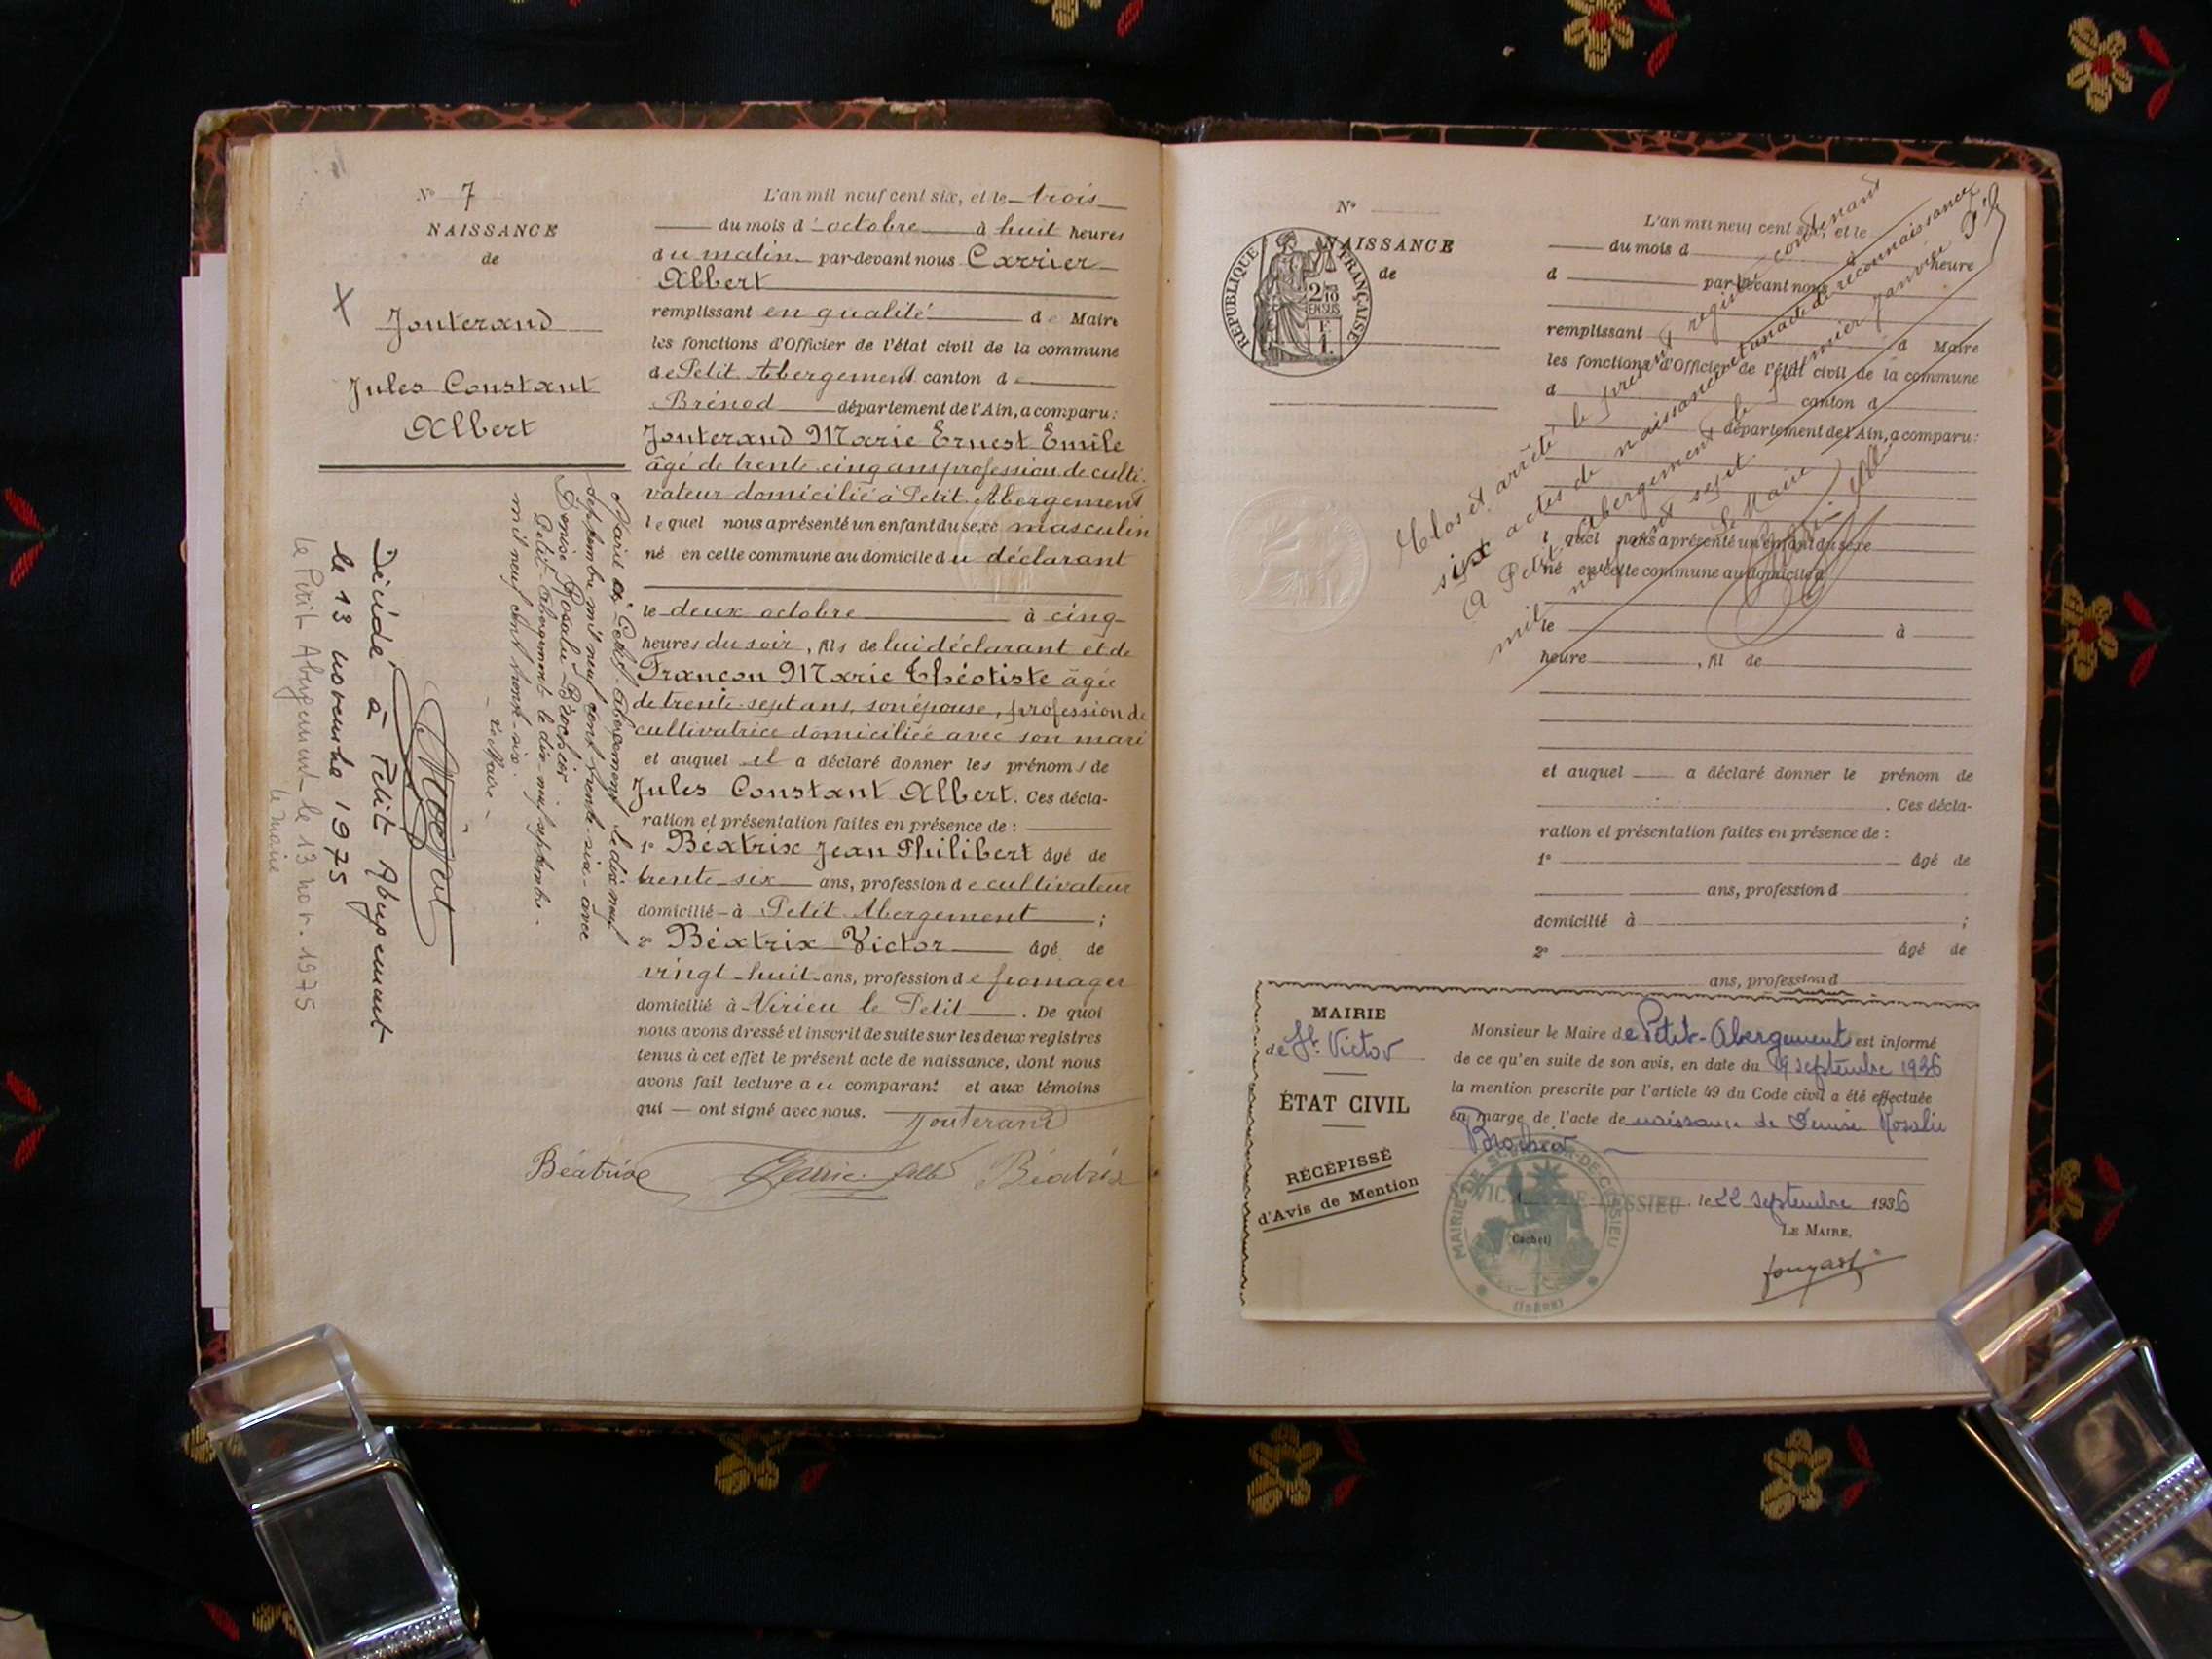 N° 7
NAISSANCE
de
Jouterand
Jules Constant
Albert
L'an mil neuf cent six, et le trois
du mois d'octobre à huit heures
du matin par-devant nous Carrier
Albert
remplissant en qualité de Maire
les fonctions d'Officier de l'état civil de la commune
de Petit Abergement canton de
Brénod département de l'Ain, a comparu :
Jouterand Marie Ernest Emile
âgé de trente cinq ans profession de culti-
vateur domicilié à Petit Abergement
lequel nous a présenté un enfant du sexe masculin
né en cette commune au domicile du déclarant
le deux octobre à cinq
heures du soir, fils de lui déclarant et de
Françon Marie Théotiste âgée
de trente-sept ans, son épouse, profession de
cultivatrice domiciliée avec son mari
et auquel il a déclaré donner les prénoms de
Jules Constant Albert. Ces décla-
ration et présentation faites en présence de :
1° Béatrix Jean Philibert âgé de
trente six ans, profession de cultivateur
domicilié à Petit Abergement ;
2° Béatrix Victor âgé de
vingt-huit ans, profession de fromager
domicilié à Virieu le Petit. De quoi
nous avons dressé et inscrit de suite sur les deux registres
tenus à cet effet le présent acte de naissance, dont nous
avons fait lecture au comparant et aux témoins
qui ont signé avec nous. Jouterand
Béatrix Béatrix
Marié à Petit-Abergement le dix neuf
septembre mil neuf cent trente-six avec
Denise Rosalie Brochier
Petit-Abergement le dix-neuf septembre
mil neuf cent trente-six.
Le Maire
Décédé à Petit Abergement
le 13 novembre 1975
Le Petit Abergement le 13 nov. 1975
le maire
N°
NAISSANCE
de
RÉPUBLIQUE FRANÇAISE
2/10 EN SUS
F. 1.
L'an mil neuf cent six, et le
du mois d à heure
d par-devant nous
remplissant d Maire
les fonctions d'Officier de l'état civil de la commune
d canton d
département de l'Ain, a comparu :
l quel nous a présenté un enfant du sexe
né en cette commune au domicile d
le à
heure , fil de
et auquel a déclaré donner le prénom de
. Ces décla-
ration et présentation faites en présence de :
1° âgé de
ans, profession d
domicilié à ;
2° âgé de
ans, profession d
Clos et arrêté le présent registre contenant
six actes de naissance et un acte de reconnaissance
A Petit Abergement le premier janvier
mil neuf cent sept.
Le Maire
MAIRIE
de St. Victor
ÉTAT CIVIL
RÉCÉPISSÉ
d'Avis de Mention
Monsieur le Maire de Petit-Abergement est informé
de ce qu'en suite de son avis, en date du 19 septembre 1936
la mention prescrite par l'article 49 du Code civil a été effectuée
en marge de l'acte de naissance de Denise Rosalie
Brochier
le 22 septembre 1936
LE MAIRE,
(Cachet)
MAIRIE DE ST VICTOR-DE-CESSIEU
(ISÈRE)